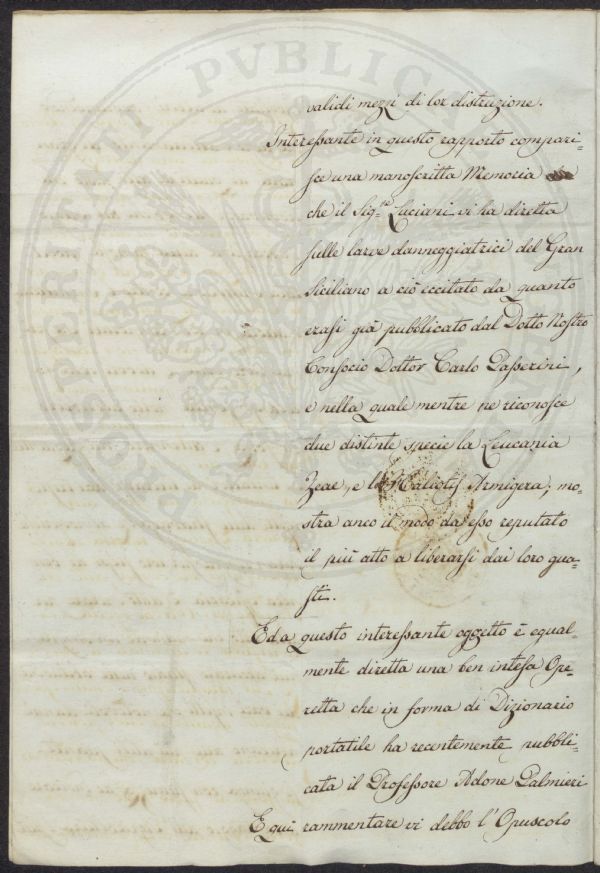 PROSPERITATI PVBLICAE
validi mezzi di lor distruzione.
Interessante in questo rapporto compari-
sce una manoscritta Memoria
che il Sig.re Luciani vi ha diretta
sulle larve danneggiatrici del Gran
Siciliano a ciò eccitato da quanto
erasi già pubblicato dal Dotto Nostro
Consocio Dottor Carlo Passerini,
e nella quale mentre ne riconosce
due distinte specie la Leucania
Zeae, e la Heliotis Armigera; mo-
stra anco il modo da esso reputato
il più atto a liberarsi dai loro gua-
sti.
Ed a questo interessante oggetto è equal-
mente diretta una ben intesa Ope-
retta che in forma di Dizionario
portatile ha recentemente pubbli-
cata il Professore Adone Palmieri
E qui rammentare vi debbo l'Opuscolo